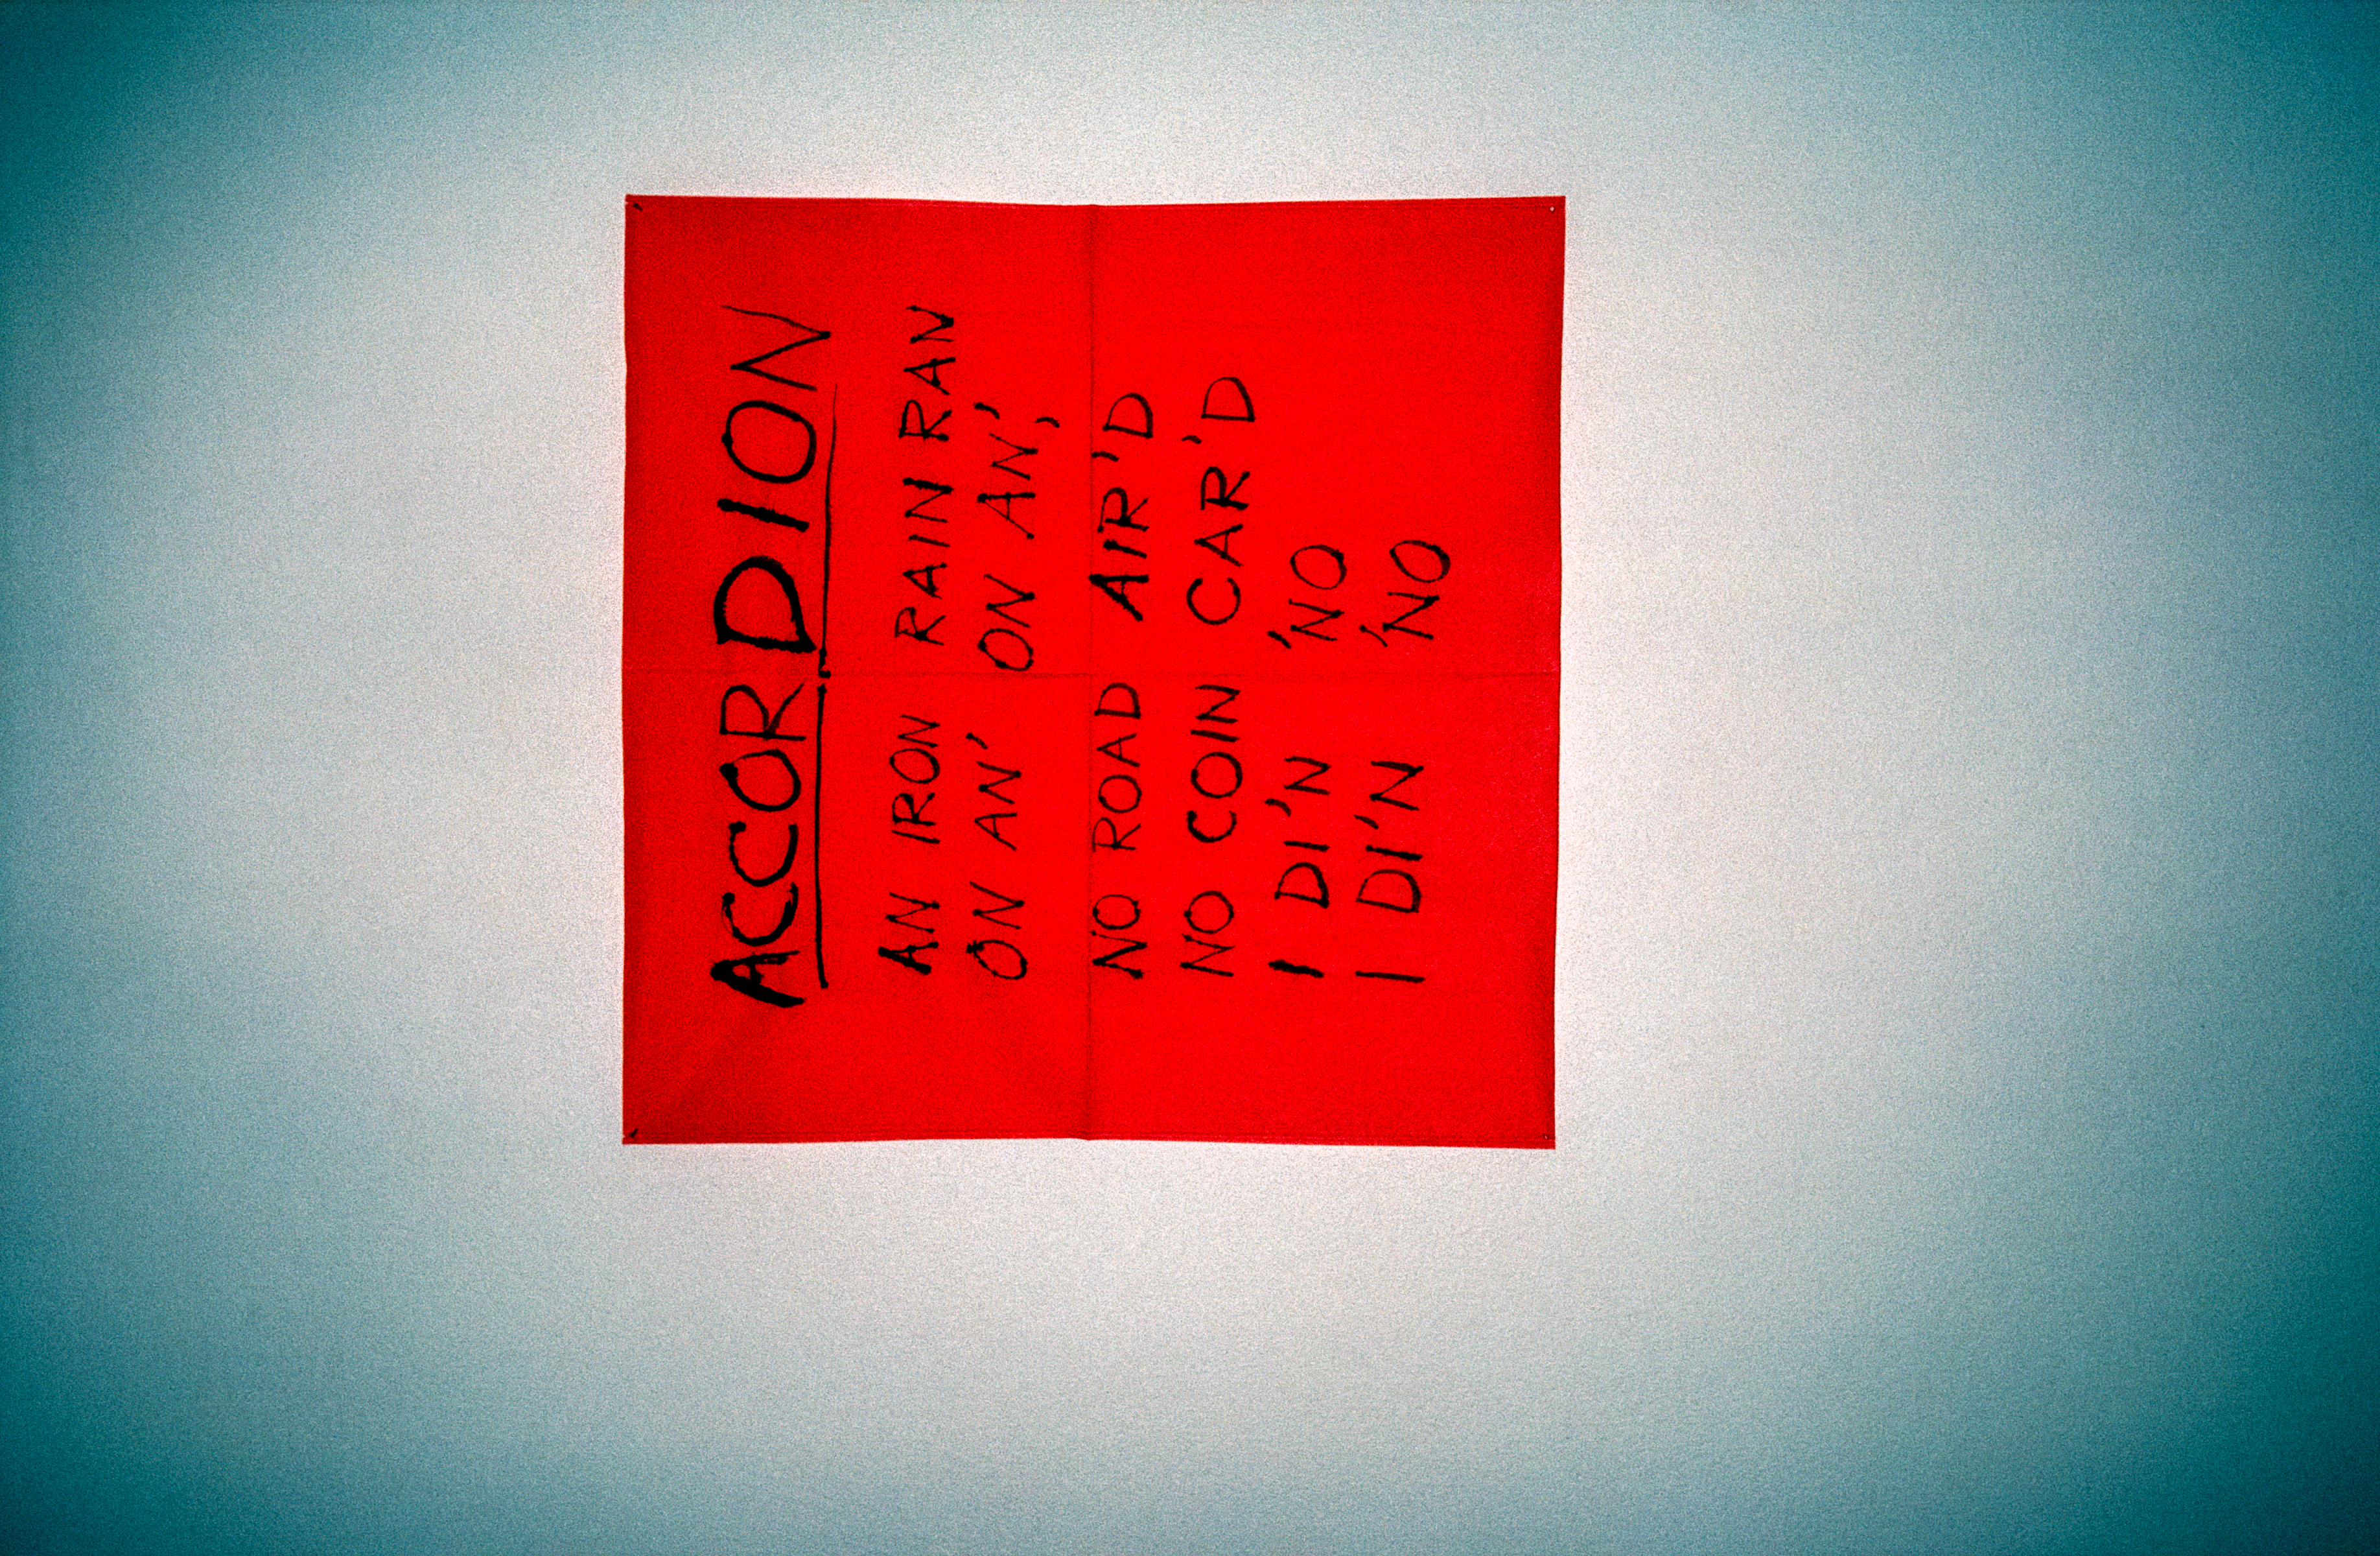 ACCORDION
AN IRON RAIN RAN
ON AN' ON AN',
NO ROAD AIR'D
NO COIN CAR'D
I DI'N 'NO
I DI'N 'NO